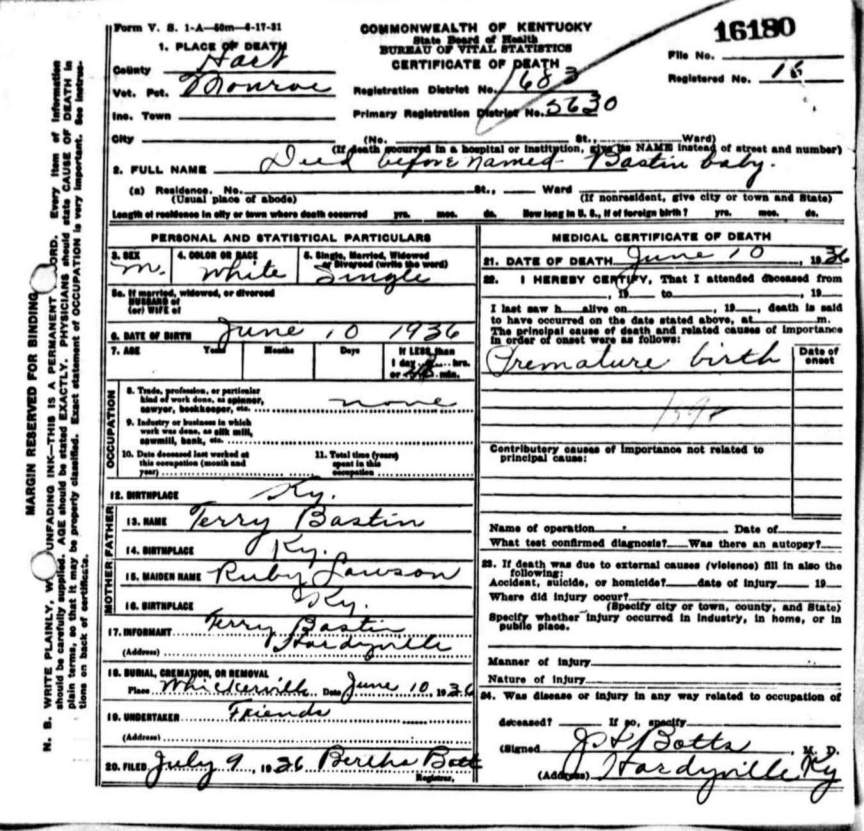 Form V. S. 1-A—50m—4-17-31
COMMONWEALTH OF KENTUCKY
State Board of Health
BUREAU OF VITAL STATISTICS
CERTIFICATE OF DEATH
16180
File No.
Registered No. 16
1. PLACE OF DEATH
County Hart
Vot. Pct. Monroe
Inc. Town
City
Registration District No. 683
Primary Registration District No. 5630
(No. St., Ward)
(If death occurred in a hospital or institution, give its NAME instead of street and number)
2. FULL NAME Died before named Bastin baby.
(a) Residence. No. St., Ward
(Usual place of abode) (If nonresident, give city or town and State)
Length of residence in city or town where death occurred yrs. mos. ds. How long in U. S., if of foreign birth? yrs. mos. ds.
PERSONAL AND STATISTICAL PARTICULARS
3. SEX 4. COLOR OR RACE 5. Single, Married, Widowed or Divorced (write the word)
m. White Single
5a. If married, widowed, or divorced
HUSBAND of
(or) WIFE of
6. DATE OF BIRTH June 10 1936
7. AGE Years Months Days If LESS than
1 day hrs.
or min.
OCCUPATION
8. Trade, profession, or particular
kind of work done, as spinner,
sawyer, bookkeeper, etc. none
9. Industry or business in which
work was done, as silk mill,
sawmill, bank, etc.
10. Date deceased last worked at
this occupation (month and
year)
11. Total time (years)
spent in this
occupation
12. BIRTHPLACE Ky.
FATHER
13. NAME Terry Bastin
14. BIRTHPLACE Ky.
MOTHER
15. MAIDEN NAME Ruby Lawson
16. BIRTHPLACE Ky.
17. INFORMANT Terry Bastin
(Address) Hardyville
18. BURIAL, CREMATION, OR REMOVAL
Place Whickerville Date June 10, 1936
19. UNDERTAKER Friends
(Address)
20. FILED July 9, 1936 Bertha Bott
Registrar.
MEDICAL CERTIFICATE OF DEATH
21. DATE OF DEATH June 10, 1936
22. I HEREBY CERTIFY, That I attended deceased from
, 19 to , 19
I last saw h alive on , 19 , death is said
to have occurred on the date stated above, at m.
The principal cause of death and related causes of importance
in order of onset were as follows:
Date of onset
Premature birth
Contributory causes of importance not related to
principal cause:
Name of operation Date of
What test confirmed diagnosis? Was there an autopsy?
23. If death was due to external causes (violence) fill in also the
following:
Accident, suicide, or homicide? date of injury 19
Where did injury occur?
(Specify city or town, county, and State)
Specify whether injury occurred in industry, in home, or in
public place.
Manner of injury
Nature of injury
24. Was disease or injury in any way related to occupation of
deceased? If so, specify
(Signed Botts, M. D.
(Address) Hardyville Ky
MARGIN RESERVED FOR BINDING